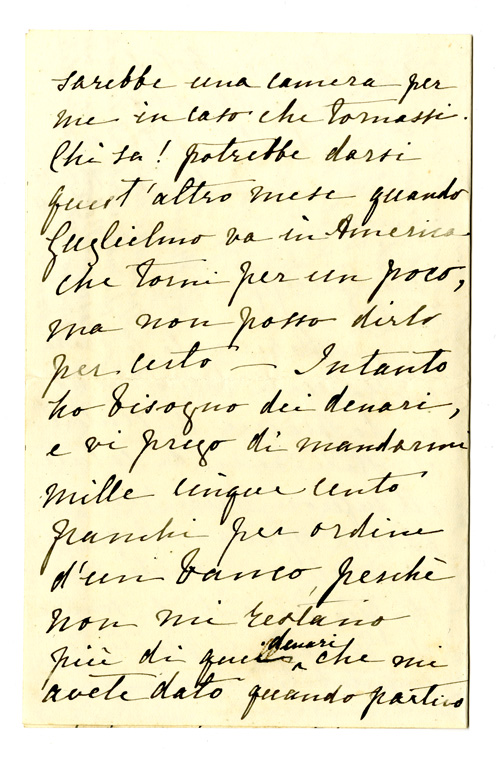 sarebbe una camera per
me in caso che tornassi.
Chi sa! potrebbe darsi
quest'altro mese quando
Guglielmo va in America
che torni per un poco,
ma non posso dirlo
per certo — Intanto
ho bisogno dei denari,
e vi prego di mandarmi
mille cinque cento
franchi per ordine
d'un banco, perchè
non mi restano
più di quei denari che mi
avete dato quando partivo